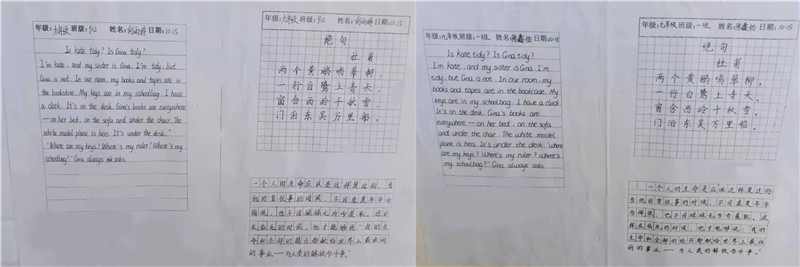 年级:九年级 班级:九2 姓名: 日期:10.15
Is kate tidy? Is Gina tidy?
I'm kate, and my sister is Gina. I'm tidy, but
Gina is not. In our room, my books and tapes are in
the bookcase. My keys are in my schoolbag. I have
a clock. It's on the desk. Gina's books are everywhere
— on her bed, on the sofa and under the chair. The
white model plane is hers. It's under the desk."
"Where are my keys? Where's my ruler? Where's my
schoolbag?" Gina always asks.
年级:九年级 班级:九2 姓名: 日期:10.15
绝句
杜甫
两个黄鹂鸣翠柳,
一行白鹭上青天
窗含西岭千秋雪,
门泊东吴万里船。
一个人的生命应该是这样度过的:当
他回首往事的时候,不因虚度年华而
悔恨,也不因碌碌无为而羞耻。这样
在临死的时候,他才能够说:"我的生
命和全部的精力都献给世界上最壮丽
的事业——为人类的解放而斗争。"
年级:九年级 班级:一班 姓名: 日期:10-15
Is kate tidy? Is Gina tidy?
I'm kate, and my sister is Gina. I'm
tidy, but Gina is not. In our room, my
books and tapes are in the bookcase. My
keys are in my schoolbag. I have a clock.
It's on the desk. Gina's books are
everywhere — on her bed, on the sofa
and under the chair. The white model
plane is hers. It's under the desk. "Where
are my keys? Where's my ruler? Where's
my schoolbag?" Gina always asks.
年级:九年级 班级:一班 姓名: 日期:10-15
绝句
杜甫
两个黄鹂鸣翠柳,
一行白鹭上青天。
窗含西岭千秋雪,
门泊东吴万里船。
一个人的生命应该这样度过的
当他回首往事的时候,不因虚度年华
而悔恨,也不因碌碌无为而羞耻,这
样在临死的时候,他才能够说:"我的
生命和全部的精力都献给世界上最壮丽
的事业——为人类的解放而斗争。"